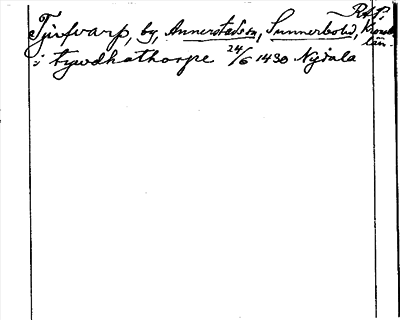 RAP.
Tjufvarp, by, Annerstads sn, Sunnerbo hd, Kronob. län.
i tywdhathorpe 24/6 1430 Nydala